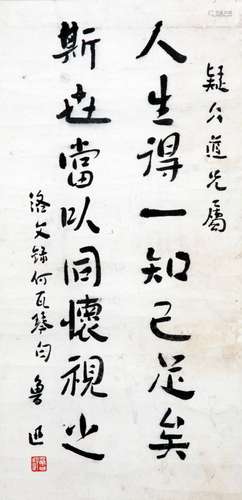 疑仌道兄屬
人生得一知己足矣
斯世當以同懷視之
洛文錄何瓦琴句 魯迅